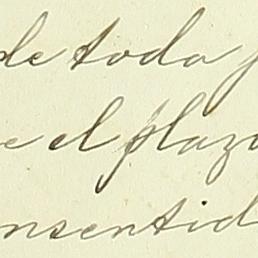 de toda
e el plazo
nsentid